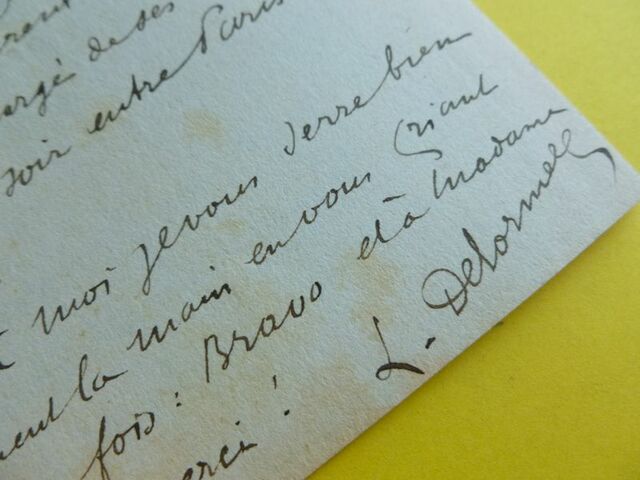 urgé de ses
soir entre Paris
moi je vous serre bien
la main en vous criant
fois : Bravo et à Madame
merci ! L. Delormel